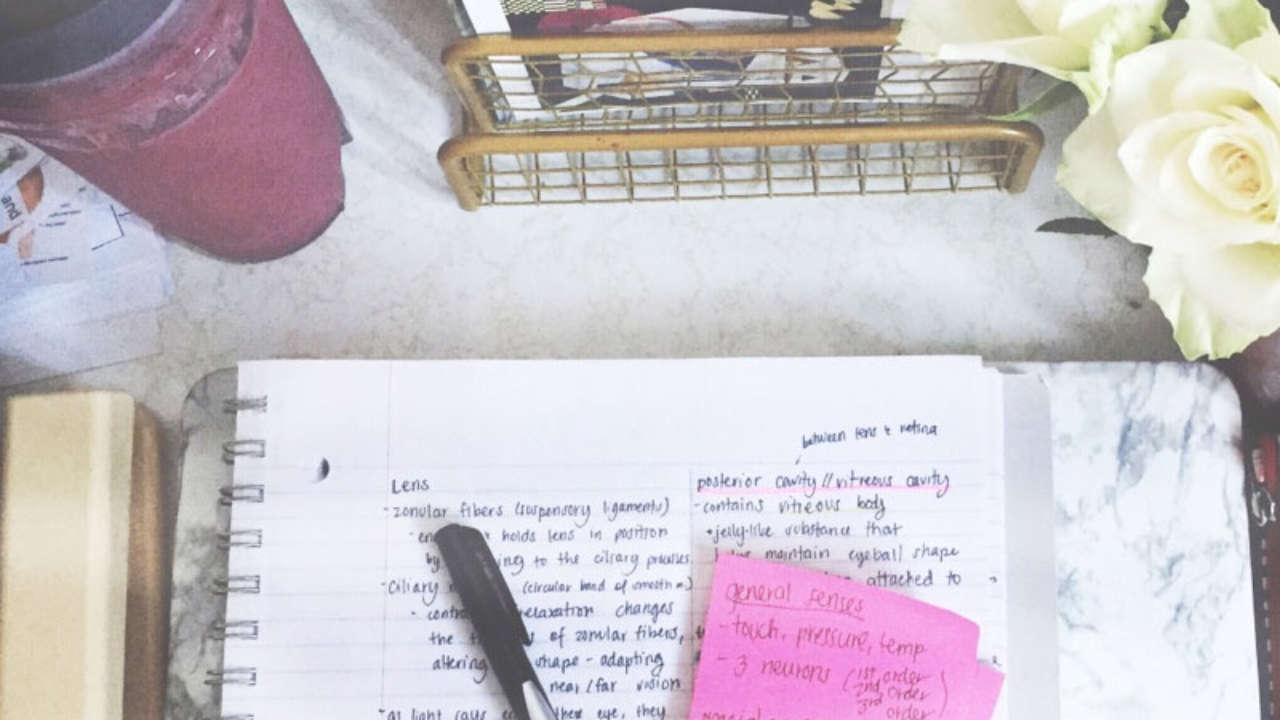 and
between lens & retina
Lens
- zonular fibers (suspensory ligaments)
- holds lens in position
to the ciliary processes.
- Ciliary (circular band of smooth m.)
- relaxation changes
the of zonular fibers,
altering shape - adapting
near/far vision
- as light rays eye, they
posterior cavity // vitreous cavity
- contains vitreous body
• jelly-like substance that
maintain eyeball shape
attached to
general senses
- touch, pressure, temp
- 3 neurons (1st order
2nd order
3rd order)